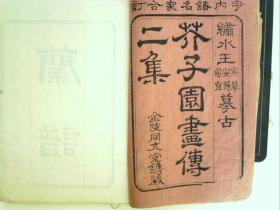 宇內諸名家合訂
繡水王宓草安節司直摹古
芥子園畫傳
二集
金陵同文堂藏
蘭譜